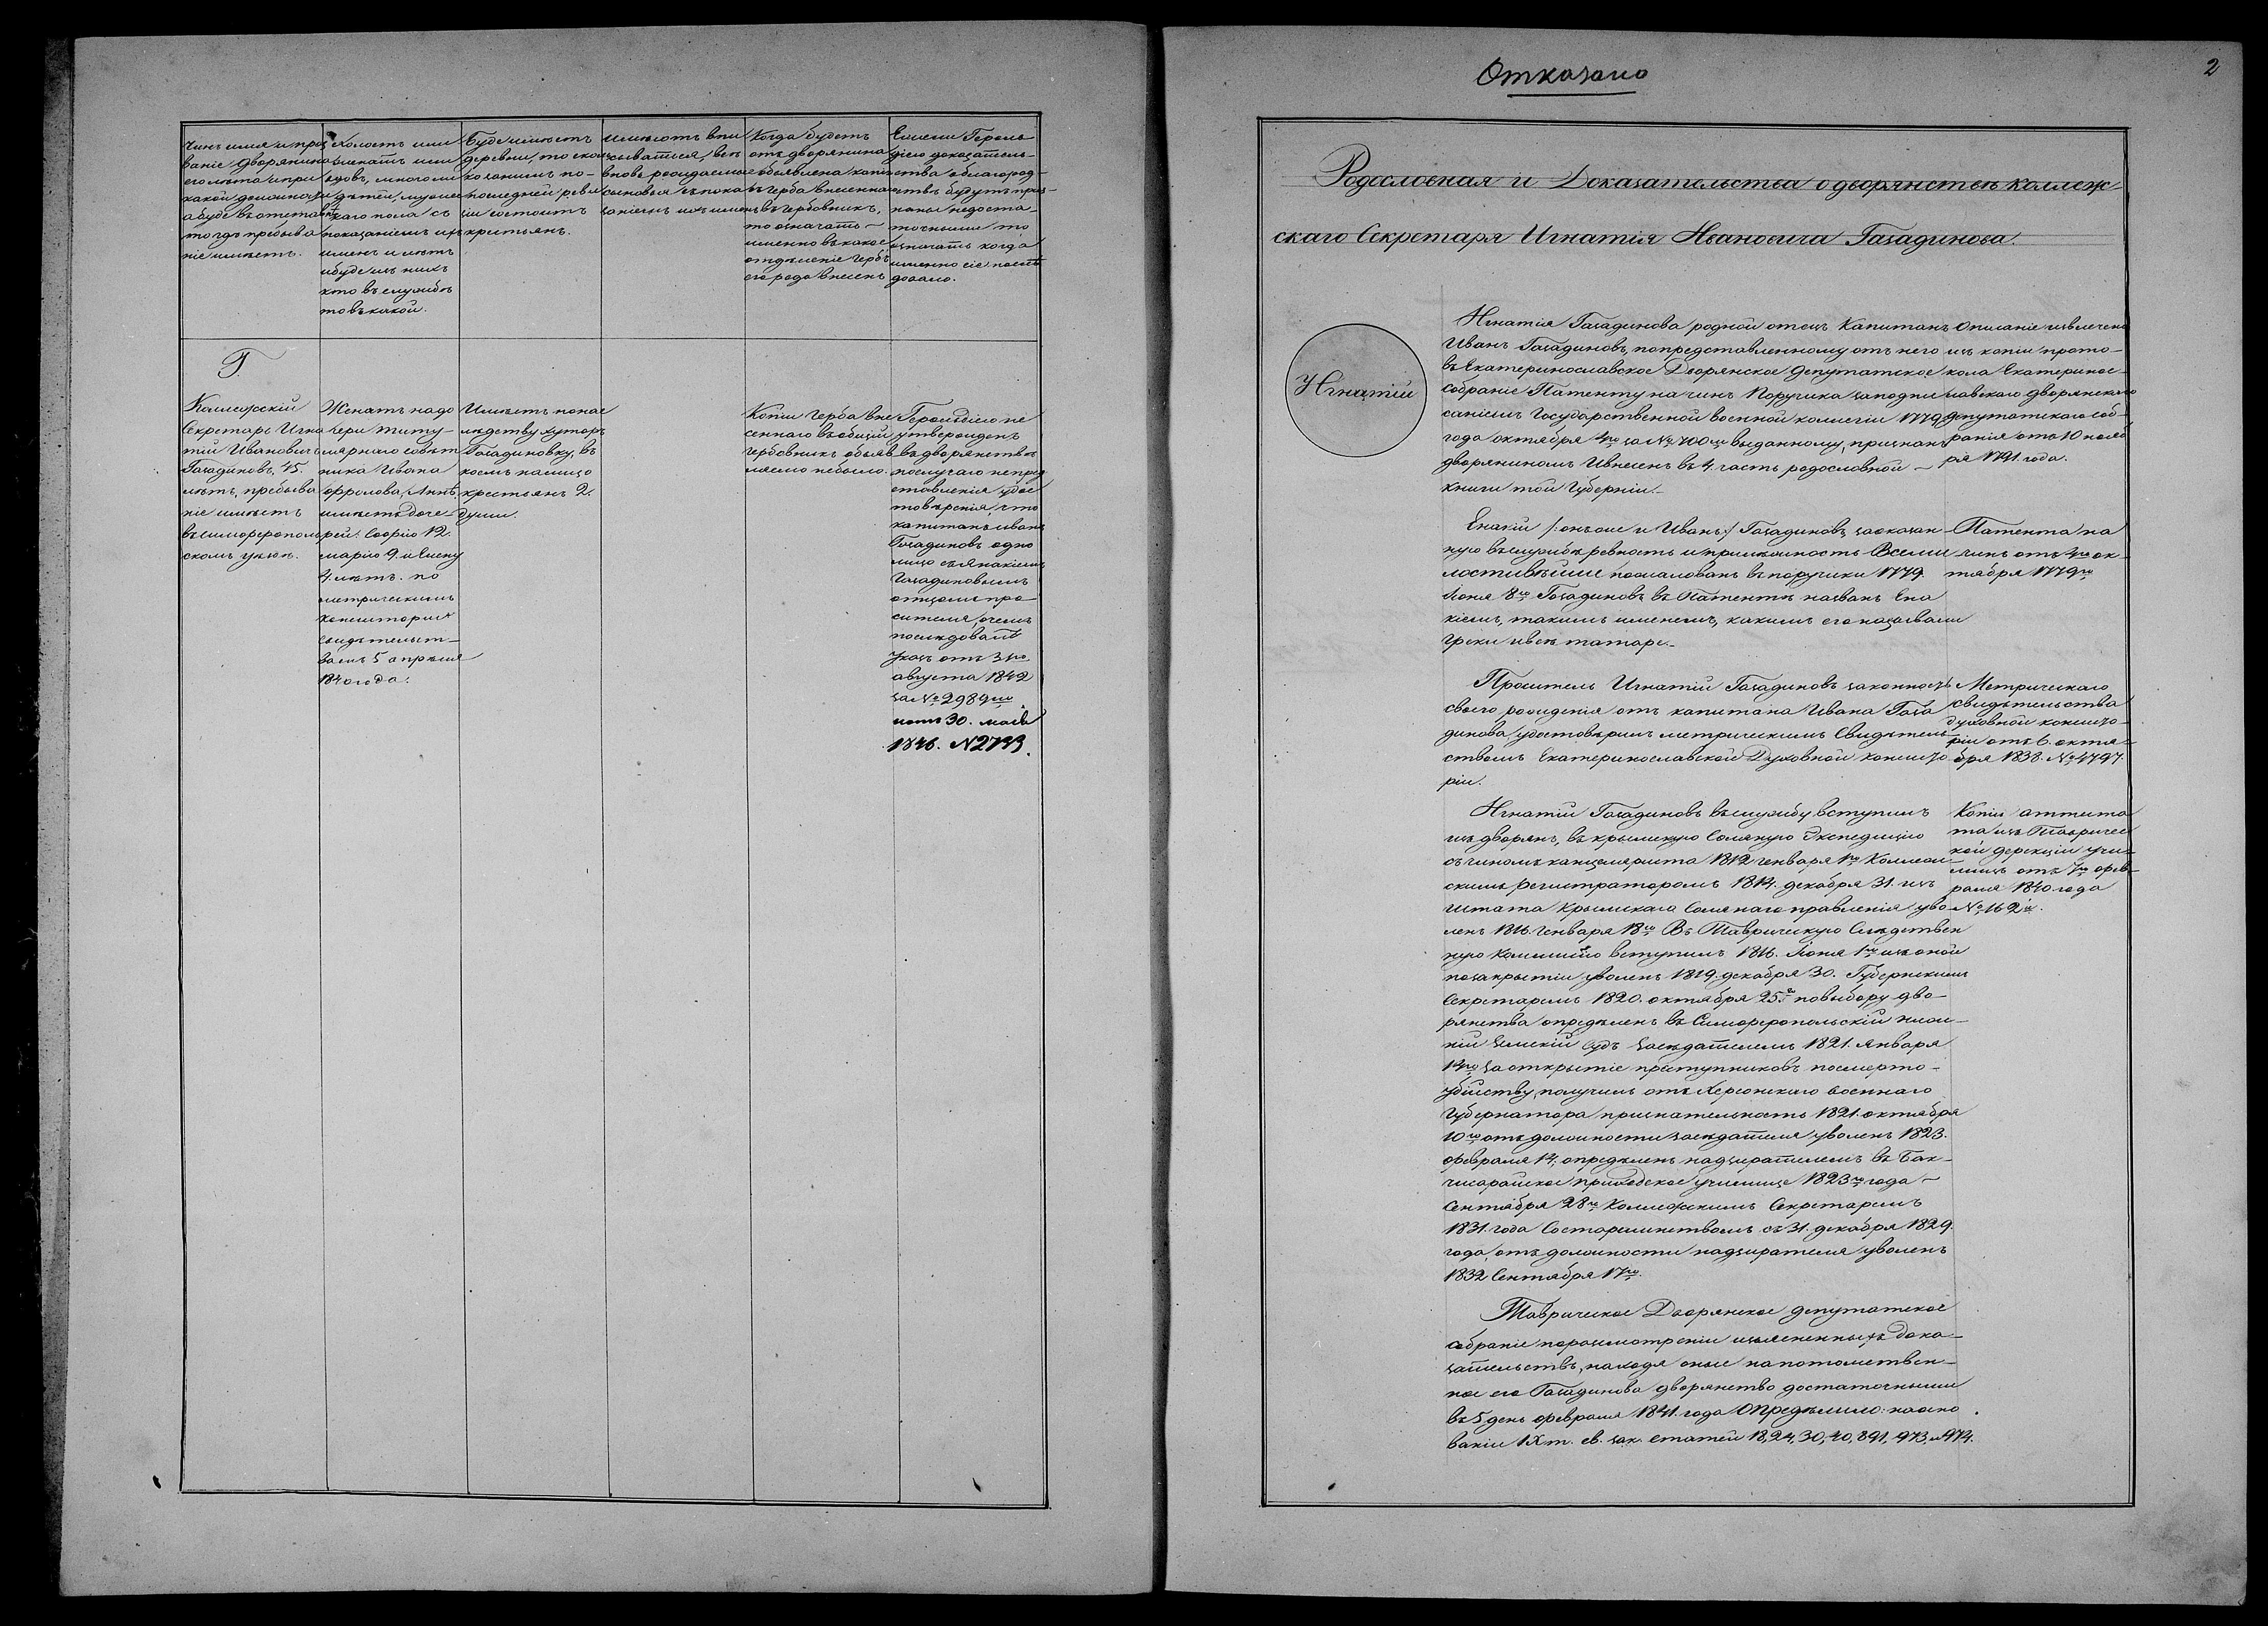 Отказано
2
Чинъ имя и проз
ваніе дворянина
его лѣта и при
какой должности
а буде въ отставкѣ
то гдѣ пребыва
ніе имѣетъ.
Холостъ или
женатъ или
вдовъ, много ли
дѣтей, мужес
каго пола съ
показаніемъ ихъ
именъ и лѣтъ
и буде изъ нихъ
кто въ службѣ
то въ какой.
Буде имѣетъ
деревни, то сколь
ко за нимъ по-
последней реви
зіи состоитъ
крестьянъ.
имѣютъ впи
сыватися, всѣ
вновь рождаемые
сыновья съ пока
заніемъ ихъ именъ
Когда будетъ
отъ дворянина
объявлена копія
съ герба внесеннаго
въ Гербовникъ,
то означать –
именно въ какое
отдѣленіе гербъ
его рода внесенъ
Ежели Героль
діею доказатель-
ства о благород-
ствѣ будутъ приз-
наны недоста-
точными то
означать когда
именно сіе послѣ
довало.
Г
Коллежскій
Секретарь Игна
тій Ивановичъ
Гозадиновъ, 45.
лѣтъ, пребыва
ніе имѣетъ
въ симферополь
скомъ уѣздѣ.
Женатъ на до
чери титу-
лярнаго совѣт
ника Ивана
Фролова, Аннѣ,
имѣетъ доче-
рей: Софію 12.
марію 9. и Елену
4. лѣтъ. по
метрическимъ
консисторіи
свидѣтельст-
вамъ 5 апрѣля
1840 года.
Имѣетъ по нас
лѣдству хуторъ
Гозадиновку, въ
коемъ на лицо
крестьянъ 2.
души.
Копіи герба вне
сеннаго въ общій
гербовникъ объяв
ляемо небыло.
Герольдіею не
утвержденъ
въ дворянствѣ
по случаю непред
ставленія удос
товѣренія, что
капитанъ иванъ
Гозадиновъ одно
лицо съ Янакіемъ
Гозадиновымъ
отцомъ про
сителя, о чемъ
послѣдовалъ
Указъ отъ 31го
августа 1842
за № 2989мъ
и отъ 30. маія
1846. N2733.
Родословная и Доказательства о дворянствѣ коллеж
скаго Секретаря Игнатія Ивановича Гозадинова.
Игнатій
Игнатія Гозадинова родной отецъ Капитанъ
Иванъ Гозадиновъ, по представленному отъ него
въ Екатеринославское Дворянское депутатское
собраніе Патенту на чинъ Поручика за подпи
саніемъ Государственной военной коллегіи 1779
года октября 4го за № 400мъ выданному, признанъ
дворяниномъ и внесенъ въ 4, часть родословной –
книги той Губерніи.–
Описаніе извлечено
изъ копіи прото-
кола Екатеринос-
лавскаго дворянскаго
депутатскаго соб-
ранія отъ 10 нояб
ря 1791. года.
Енакій /: онъ же и Иванъ:/ Гозадиновъ за оказан-
ную въ службѣ ревность и прилѣжность Всеми
лостивѣйше пожалованъ въ поручики 1779.
Іюня 8го Гозадиновъ въ Патентѣ названъ Ена
кіемъ, такимъ именемъ, какимъ его называли
Греки и всѣ татаре.–
Патента на
чинъ отъ 4го ок-
тября 1779го
Проситель Игнатій Гозадиновъ законность
своего рожденія отъ капитана Ивана Гоза
динова, удостовѣрилъ метрическимъ Свидѣтель
ствомъ Екатеринославской Духовной консисто
ріи.
Метрическаго
свидѣтельства
духовной консисто-
ріи отъ 6. октя-
бря 1838. № 4797.
Игнатій Гозадиновъ въ службу вступилъ
изъ дворянъ, въ крымскую Соляную Экспедицію
съ чиномъ канцеляриста 1812 генваря 1го Коллеж-
скимъ регистраторомъ 1814. декабря 31. изъ
штата Крымскаго Солянаго правленія уво
ленъ 1816. генваря 18го Въ Таврическую Слѣдствен
ную Коммисію вступилъ 1816. Іюня 1го изъ оной
по закрытіи уволенъ 1819. декабря 30. Губернскимъ
Секретаремъ 1820. октября 25. по выбору дво-
рянства опредѣленъ въ Симферопольскій ниж-
ній земскій судъ Засѣдателемъ 1821. января
14го за открытіе преступниковъ по смерто-
убійству, получилъ отъ Херсонскаго военнаго
Губернатора признательность 1821. октября
10го отъ должности засѣдателя уволенъ 1823.
февраля 14, опредѣленъ надзирателемъ въ Бах-
чисарайское приходское училище 1823го года –
Сентября 28го Коллежскимъ Секретаремъ
1831. года Со старшинствомъ съ 31. декабря 1829.
года, отъ должности надзирателя уволенъ
1832 Сентября 17го.
Копіи аттеста
та изъ Тавричес
кой дерекціи учи-
лищъ отъ 7го фев-
раля 1840 года
№ 162й.
Таврическое Дворянское депутатское
собраніе по разсмотреніи изъясненныхъ дока-
зательствъ, находя оные на потомствен-
ное его Гозадинова дворянство достаточными
въ 5 день февраля 1841. года Опредѣлило: на осно
ваніи IХ т. св. зак. статей 18, 24, 30, 40, 891, 973, и 974.